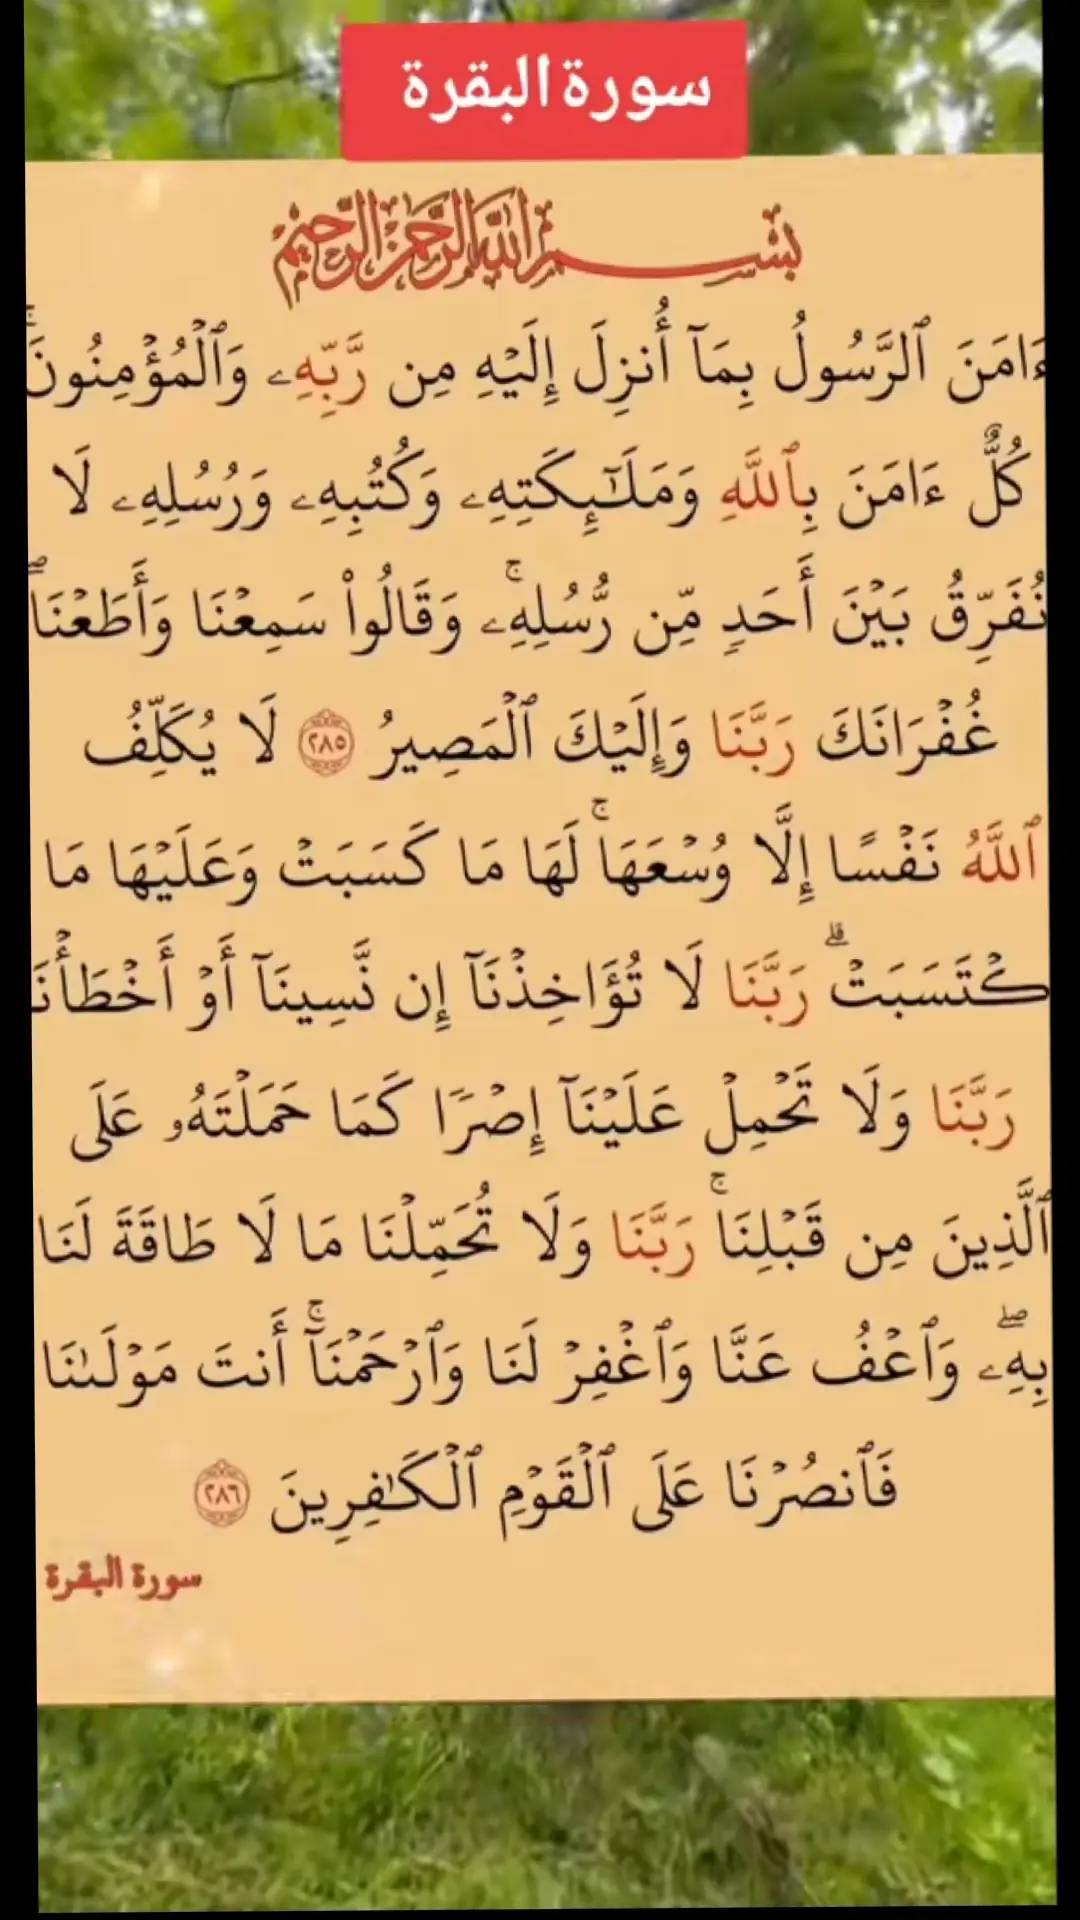 سورة البقرة
بِسْمِ اللَّهِ الرَّحْمَٰنِ الرَّحِيمِ
ءَامَنَ ٱلرَّسُولُ بِمَآ أُنزِلَ إِلَيْهِ مِن رَّبِّهِۦ وَٱلْمُؤْمِنُونَۚ
كُلٌّ ءَامَنَ بِٱللَّهِ وَمَلَـٰٓئِكَتِهِۦ وَكُتُبِهِۦ وَرُسُلِهِۦ لَا
نُفَرِّقُ بَيْنَ أَحَدٍ مِّن رُّسُلِهِۦۚ وَقَالُوا۟ سَمِعْنَا وَأَطَعْنَاۖ
غُفْرَانَكَ رَبَّنَا وَإِلَيْكَ ٱلْمَصِيرُ ٢٨٥ لَا يُكَلِّفُ
ٱللَّهُ نَفْسًا إِلَّا وُسْعَهَاۚ لَهَا مَا كَسَبَتْ وَعَلَيْهَا مَا
كْتَسَبَتْۗ رَبَّنَا لَا تُؤَاخِذْنَآ إِن نَّسِينَآ أَوْ أَخْطَأْنَ
رَبَّنَا وَلَا تَحْمِلْ عَلَيْنَآ إِصْرًا كَمَا حَمَلْتَهُۥ عَلَى
ٱلَّذِينَ مِن قَبْلِنَاۚ رَبَّنَا وَلَا تُحَمِّلْنَا مَا لَا طَاقَةَ لَنَا
بِهِۦۖ وَٱعْفُ عَنَّا وَٱغْفِرْ لَنَا وَٱرْحَمْنَآۚ أَنتَ مَوْلَىٰنَا
فَٱنصُرْنَا عَلَى ٱلْقَوْمِ ٱلْكَـٰفِرِينَ ٢٨٦
سورة البقرة